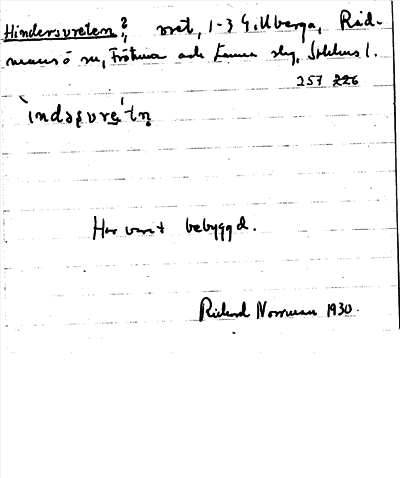 Hindersvreten?, vret, 1-3 G. Uberga, Råd-
mansö sn, Frötuna och Länna skg, Sthlms l.
257 226
`indəʂvre´tn̥
Har varit bebyggd.
Richard Norrman 1930.